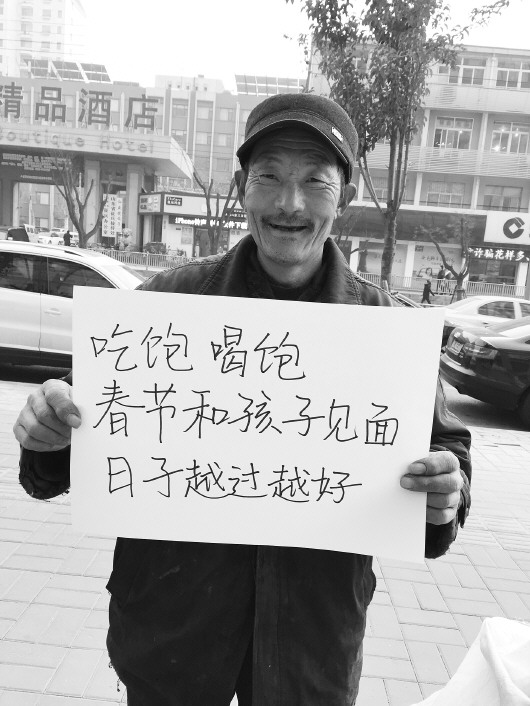 精品酒店
Boutique Hotel
诈骗花样多
吃饱 喝饱
春节和孩子见面
日子越过越好